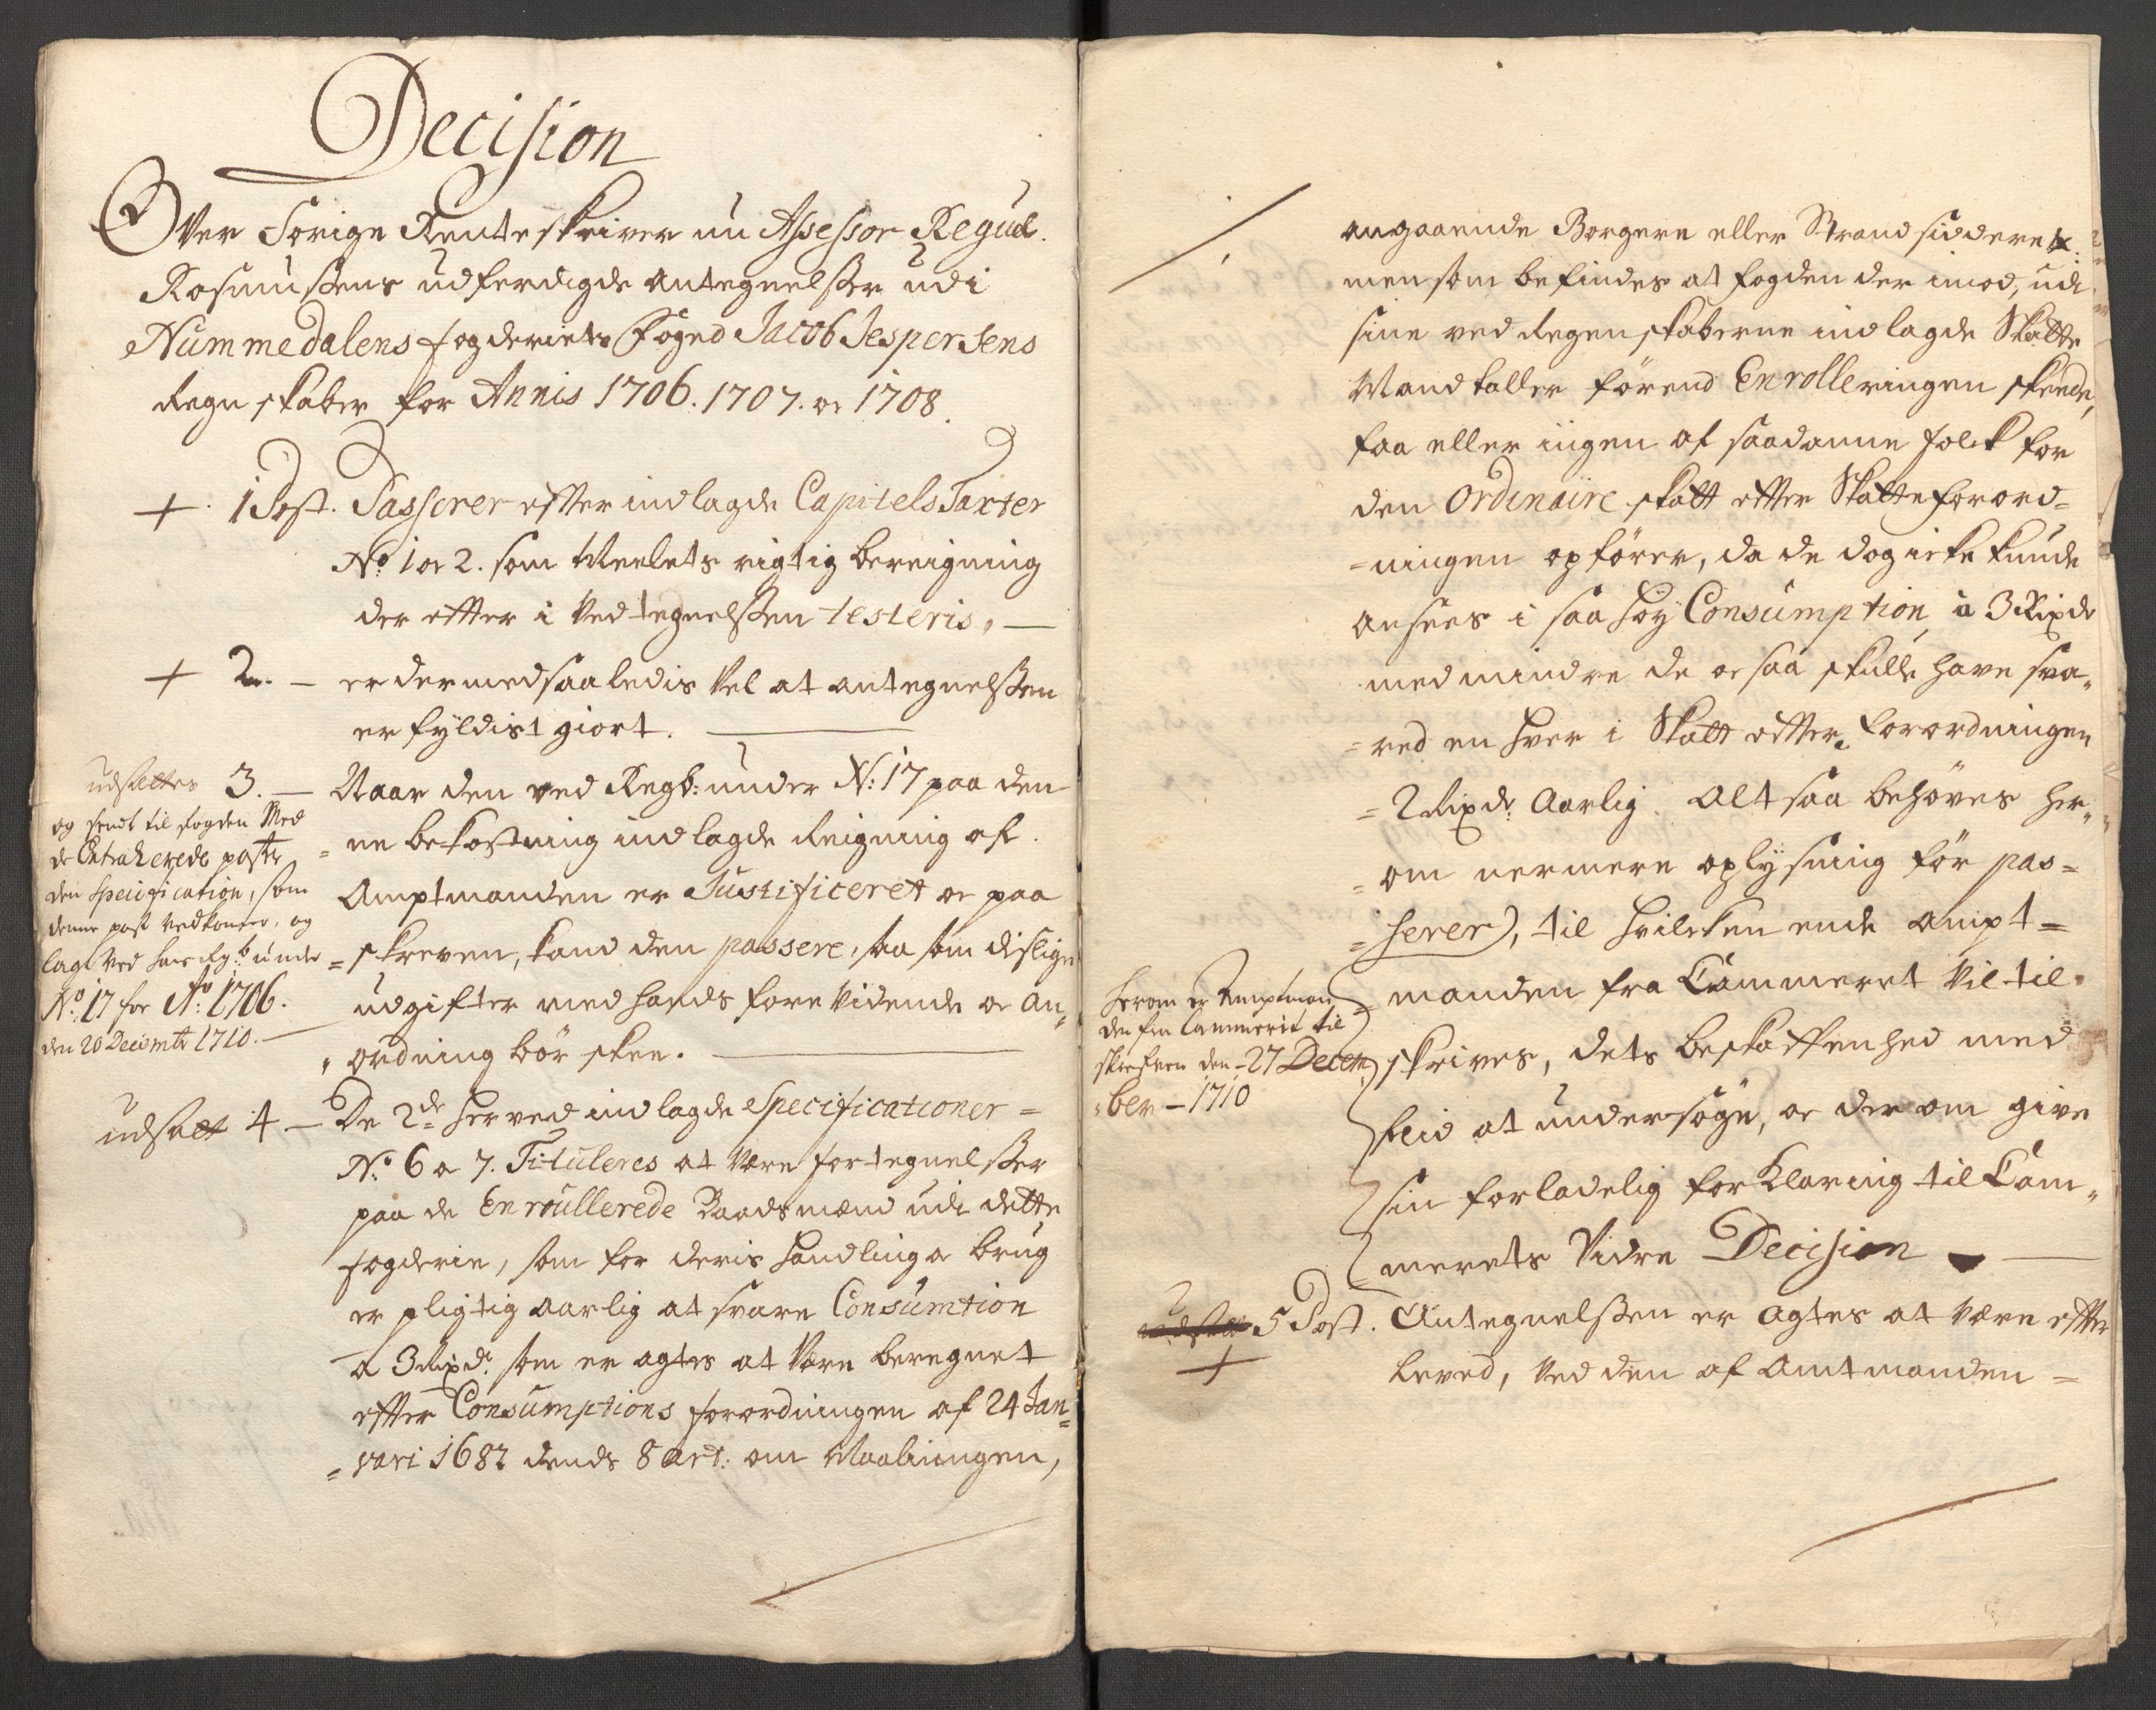 Decision
Over Forige Renteskriver nu Assessor Regud.
Rasmussens udferdigede antegnelsser udi
Nummedalens fogderiets Foged Jacob Jespersens
Regnskaber for Annis 1706. 1707. oc 1708.
+ 1 Post. Passerer efter indlagde Capitels Taxter
No 1 oc 2. som Meelets rigtig bereigning
der efter i Vedtegnelssen testeris, —
+ 2. — er dermed saaledis vel at antegnelssen
er fyldist giort. —
udsættes 3. — Naar den ved Regb: under N: 17 paa den
= ne bekostning indlagde Reigning af
Amptmanden er Justificeret oc paa
= skreven, kand den passere, saa som dislige
udgifter med hands forevidende oc an„
„ ordning bør skee. —
og sendt til fogden Med
de Extraherede poster
den specification, som
denne post vedkommer, og
lagt ved hans Rgb: under
No: 17 for Ao: 1706.
den 20 Decembr 1710. —
udsatt 4 — De 2de herved indlagde specificationer =
No 6 a 7. Tituleres at være fortegnelsser
paa de Enroullerede Baadsmænd udi dette
fogderie, som for deris handling oc brug
er pligtig aarlig at svare Consumtion
a 3 Rixdr. som er agtes at være beregnet
efter Consumptions forordningen af 24 Jan„
= vari 1682 dends 8 art: om Maalningen,
angaaende Borgere eller Strandsiddere
men som befindes at fogden der imod, udi
sine ved Regenskaberne indlagde Skatte
Mandtaller førend Enrolleringen skeede,
faa eller ingen af saadanne folck for
den Ordinaire skatt efter Skatteforord=
=ningen opfører, da de dog icke kunde
ansees i saa høy Consumption a 3 Rixdr
med mindre de oc saa skulle have sva„
= red en hver i Skatt efter forordningen
= 2 Rixdr: Aarlig. Alt saa behøves her„
= om nermere oplysning før pas=
= serer), til hvilcken ende ampt=
= manden fra Cammeret vil til„
skrives, dets beskaffenhed med
flid at undersøge, oc der om give
sin forladelig forklaring til Cam„
merets vidre Decision —
Herom er Amptman
den fra Cammerit til
skrefven den 27 Decem
„ber — 1710
5 Post. Antegnelssen er agtes at være efter
+ leved, ved den af Amtmanden =